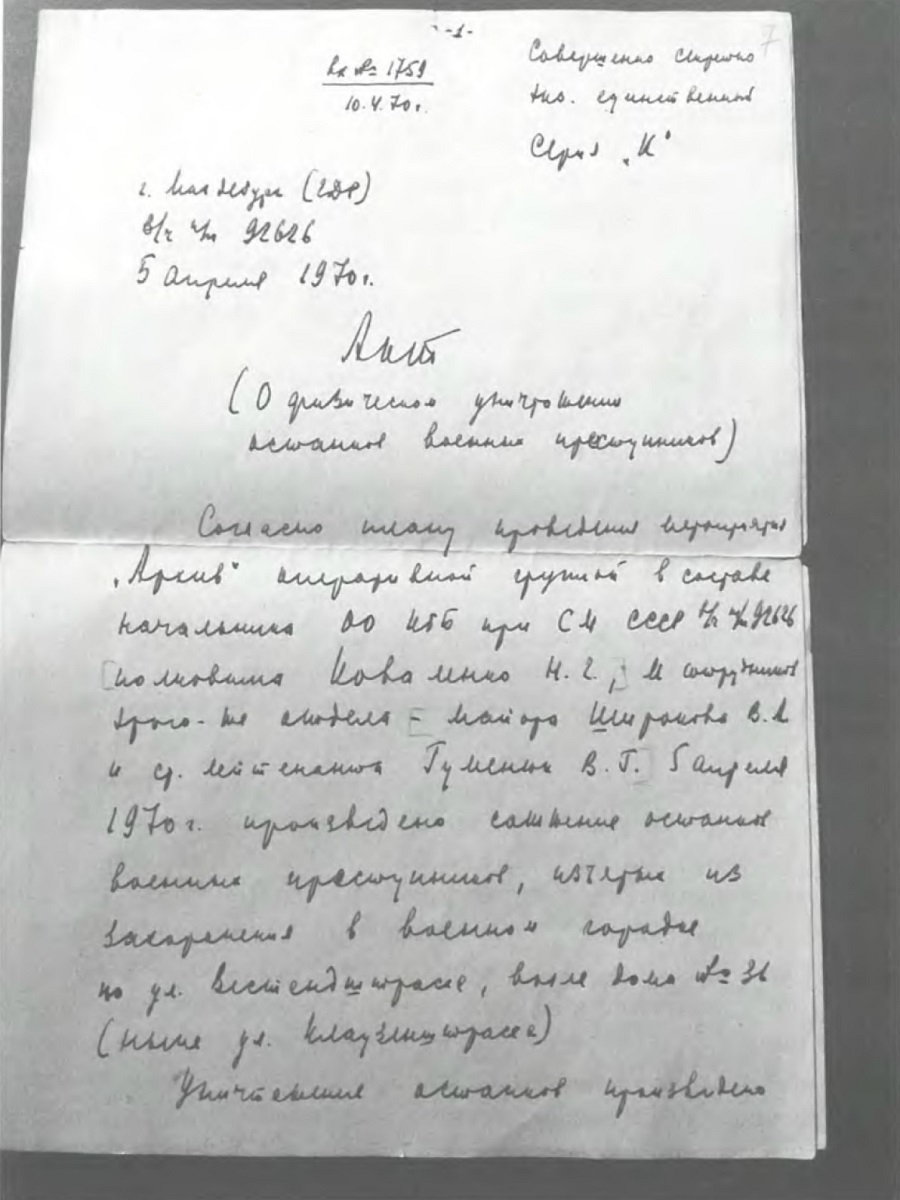 -1-
7
Вх № 1759
10.4.70г.
Совершенно секретно
экз. единственный
Серия „К"
г. Магдебург (ГДР)
в/ч п/п 92626
5 апреля 1970г.
Акт
(О физическом уничтожении
останков военных преступников)
Согласно плану проведения мероприятия
„Архив" оперативной группой в составе
начальника ОО КГБ при СМ СССР в/ч п/п 92626
[полковника Коваленко Н.Г.,] и сотрудников
того-же отдела – [майора Широкова В.А.
и ст. лейтенанта Гуменюк В.Г.] 5 апреля
1970г. произведено сожжение останков
военных преступников, изъятых из
захоронения в военном городке
по ул. Вестендштрассе, возле дома № 36
(ныне ул. Клаузенштрассе)
Уничтожение останков произведено